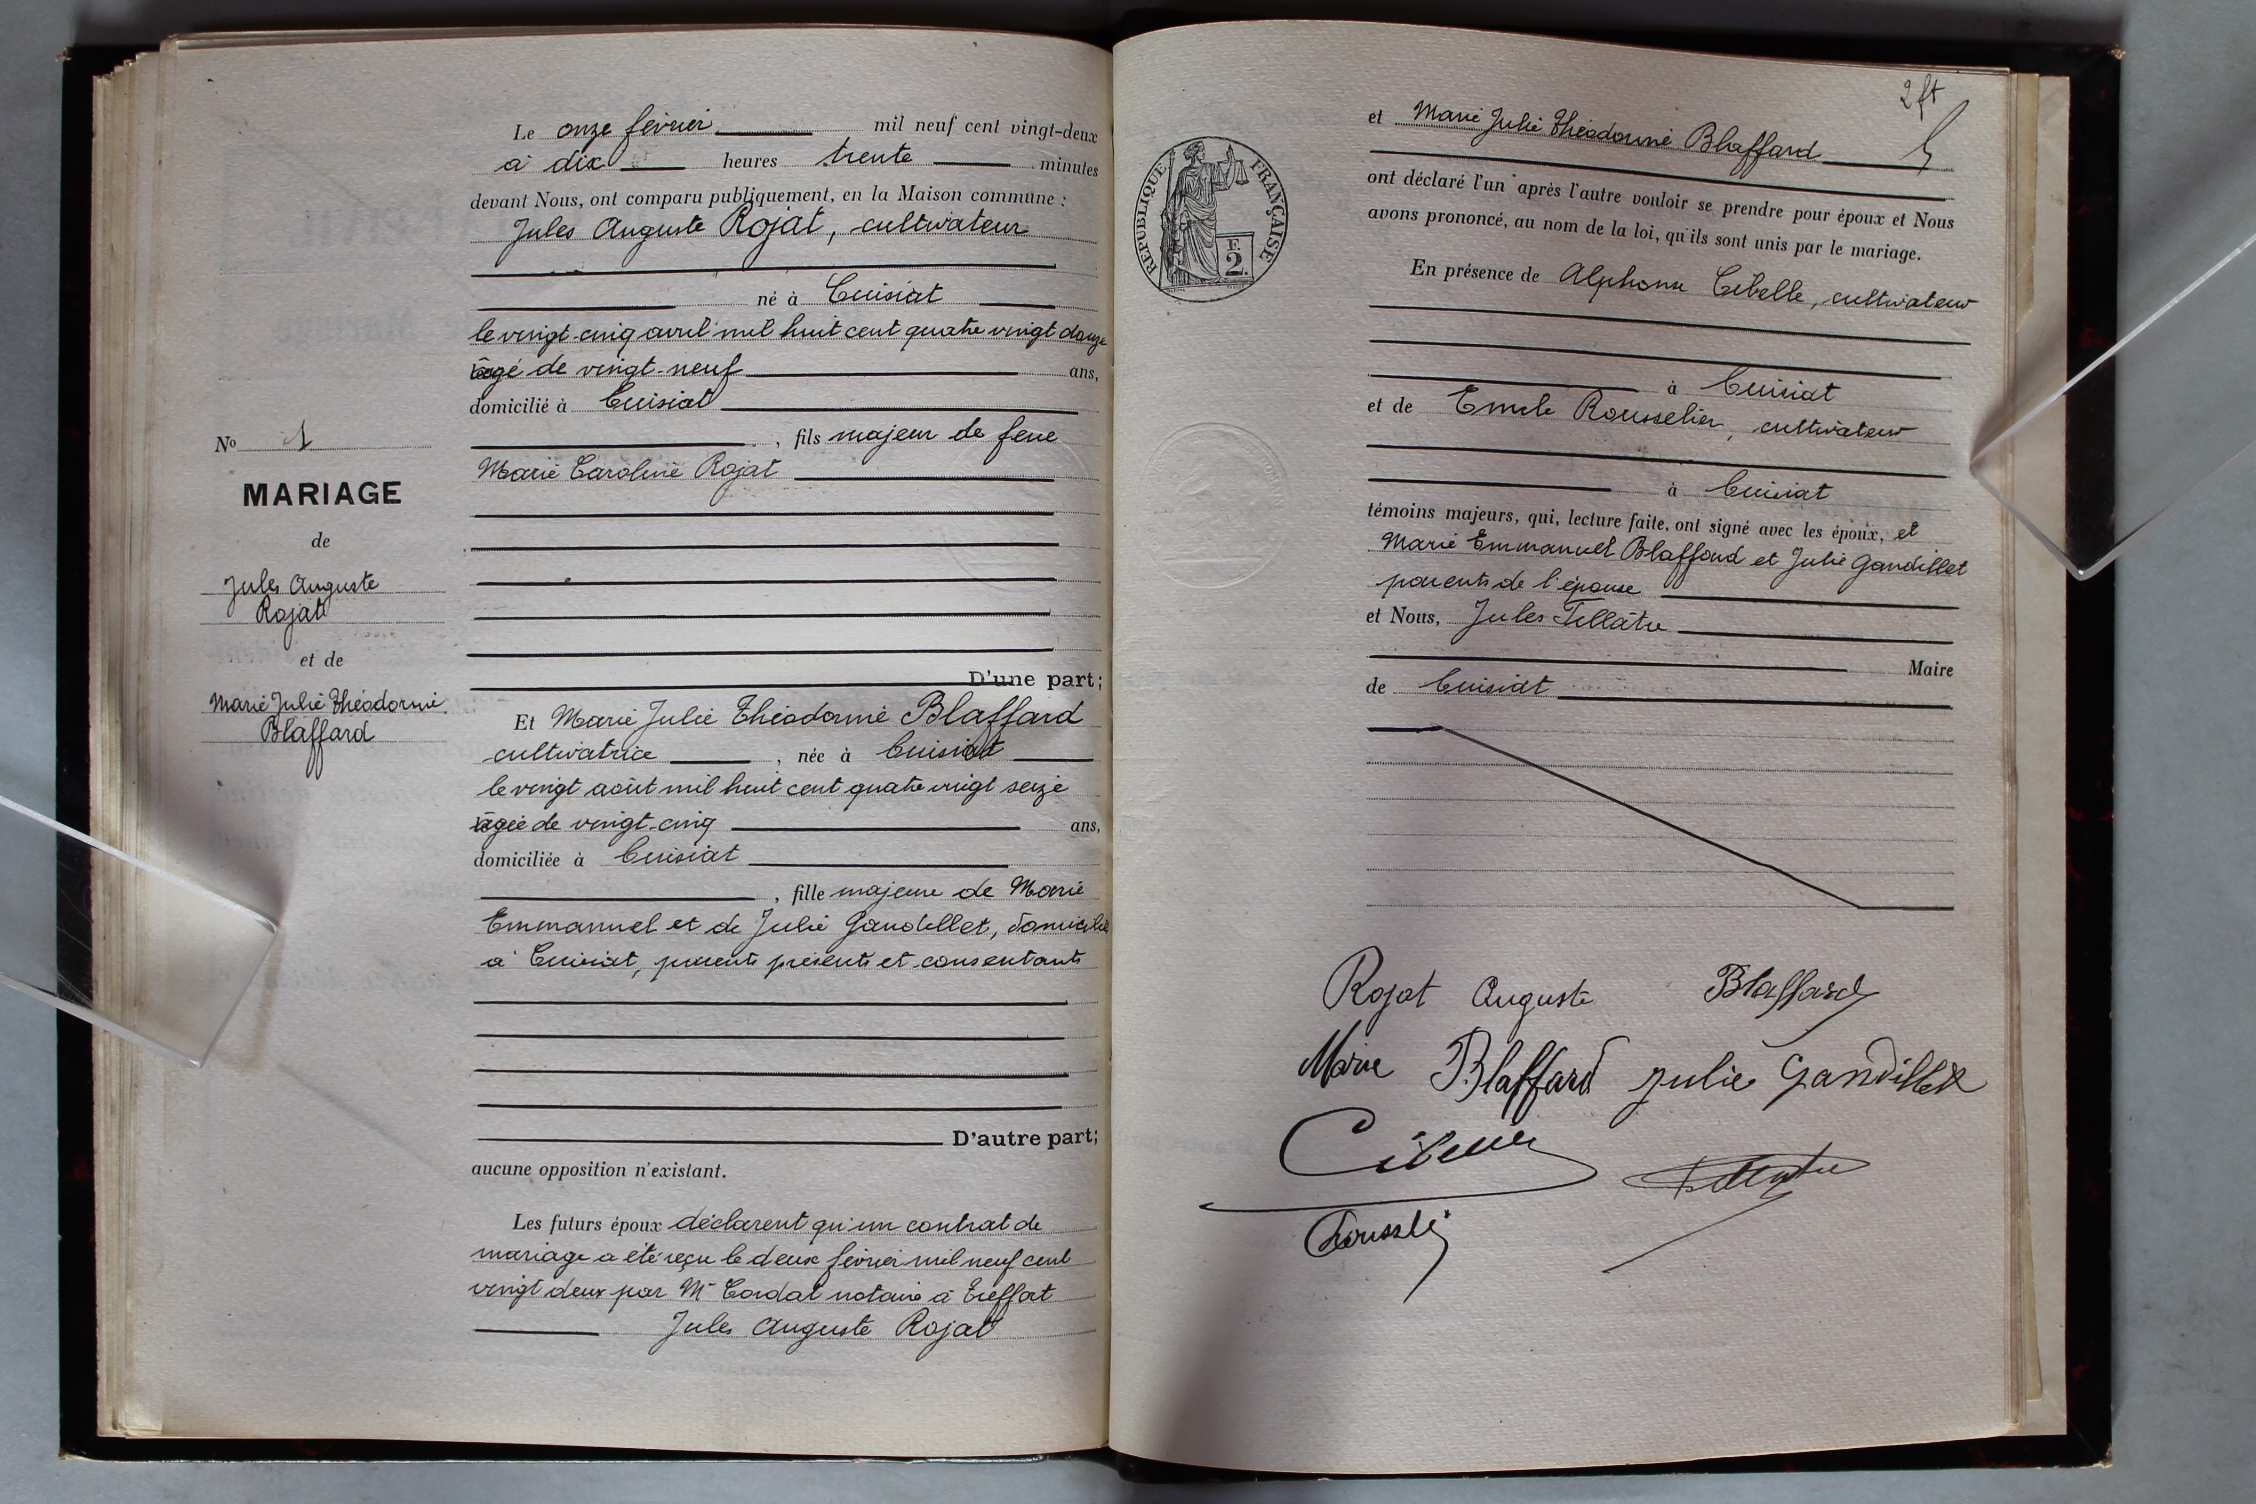 Le onze février mil neuf cent vingt-deux
à dix heures trente minutes
devant Nous, ont comparu publiquement, en la Maison commune :
Jules Auguste Rojat, cultivateur
né à Cuisiat
le vingt-cinq avril mil huit cent quatre vingt douze
âgé de vingt-neuf ans,
domicilié à Cuisiat
, fils majeur de feue
Marie Caroline Rojat
D'une part;
Et Marie Julie Théodorine Blaffard
cultivatrice , née à Cuisiat
le vingt août mil huit cent quatre vingt seize
âgée de vingt-cinq ans,
domiciliée à Cuisiat
, fille majeure de Marie
Emmanuel et de Julie Gandillet, domiciliés
à Cuisiat, parents présents et consentants
D'autre part;
aucune opposition n'existant.
Les futurs époux déclarent qu'un contrat de
mariage a été reçu le deux février mil neuf cent
vingt deux par Me Cordat notaire à Treffort
Jules Auguste Rojat
No 1
MARIAGE
de
Jules Auguste
Rojat
et de
Marie Julie Théodorine
Blaffard
2 ft
RÉPUBLIQUE FRANÇAISE
F.
2.
et Marie Julie Théodorine Blaffard
ont déclaré l'un après l'autre vouloir se prendre pour époux et Nous
avons prononcé, au nom de la loi, qu'ils sont unis par le mariage.
En présence de Alphonse Cibelle, cultivateur
à Cuisiat
et de Emile Rousselier, cultivateur
à Cuisiat
témoins majeurs, qui, lecture faite, ont signé avec les époux, et
Marie Emmanuel Blaffard et Julie Gandillet
parents de l'épouse
et Nous, Jules Tillâtre
Maire
de Cuisiat
Rojat Auguste Blaffard
Marie Blaffard Julie Gandillet